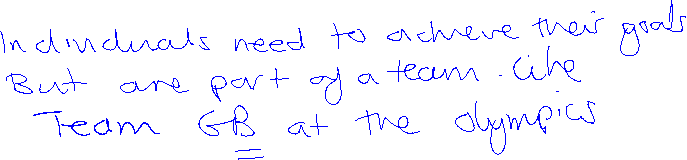 Individuals need to achieve their goals
But are part of a team. Like
Team GB at the olympics